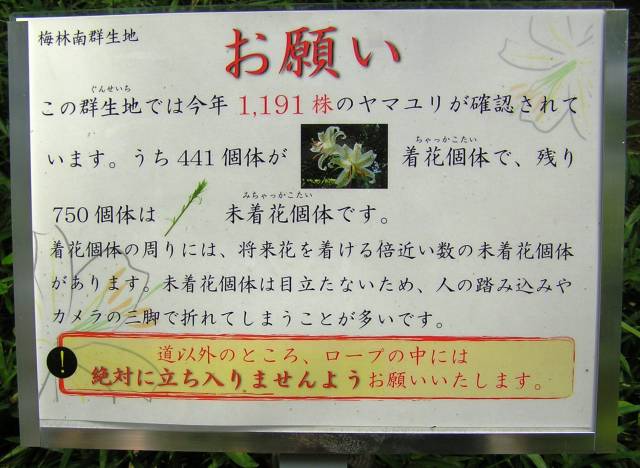 梅林南群生地
お願い
ぐんせいち
この群生地では今年 1,191 株のヤマユリが確認されて
ちゃっかこたい
います。うち 441 個体が 着花個体で、残り
みちゃっかこたい
750 個体は 未着花個体です。
着花個体の周りには、将来花を着ける倍近い数の未着花個体
があります。未着花個体は目立たないため、人の踏み込みや
カメラの三脚で折れてしまうことが多いです。
! 道以外のところ、ロープの中には
絶対に立ち入りませんようお願いいたします。